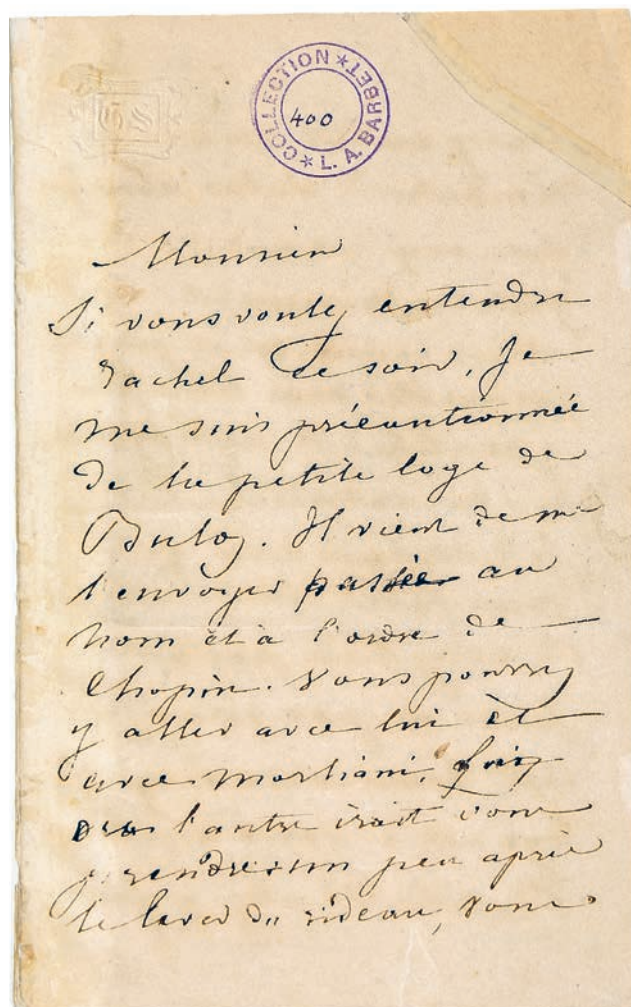 COLLECTION * L. A. BARBET *
400
GS
Monsieur
Si vous voulez entendre
Rachel ce soir, je
me suis précautionnée
de la petite loge de
Buloz. Il vient de me
l'envoyer passée au
nom et à l'ordre de
Chopin. Vous pourrez
y aller avec lui et
avec Marliani.
l'autre irait vous
prendre un peu après
le lever du rideau, vous